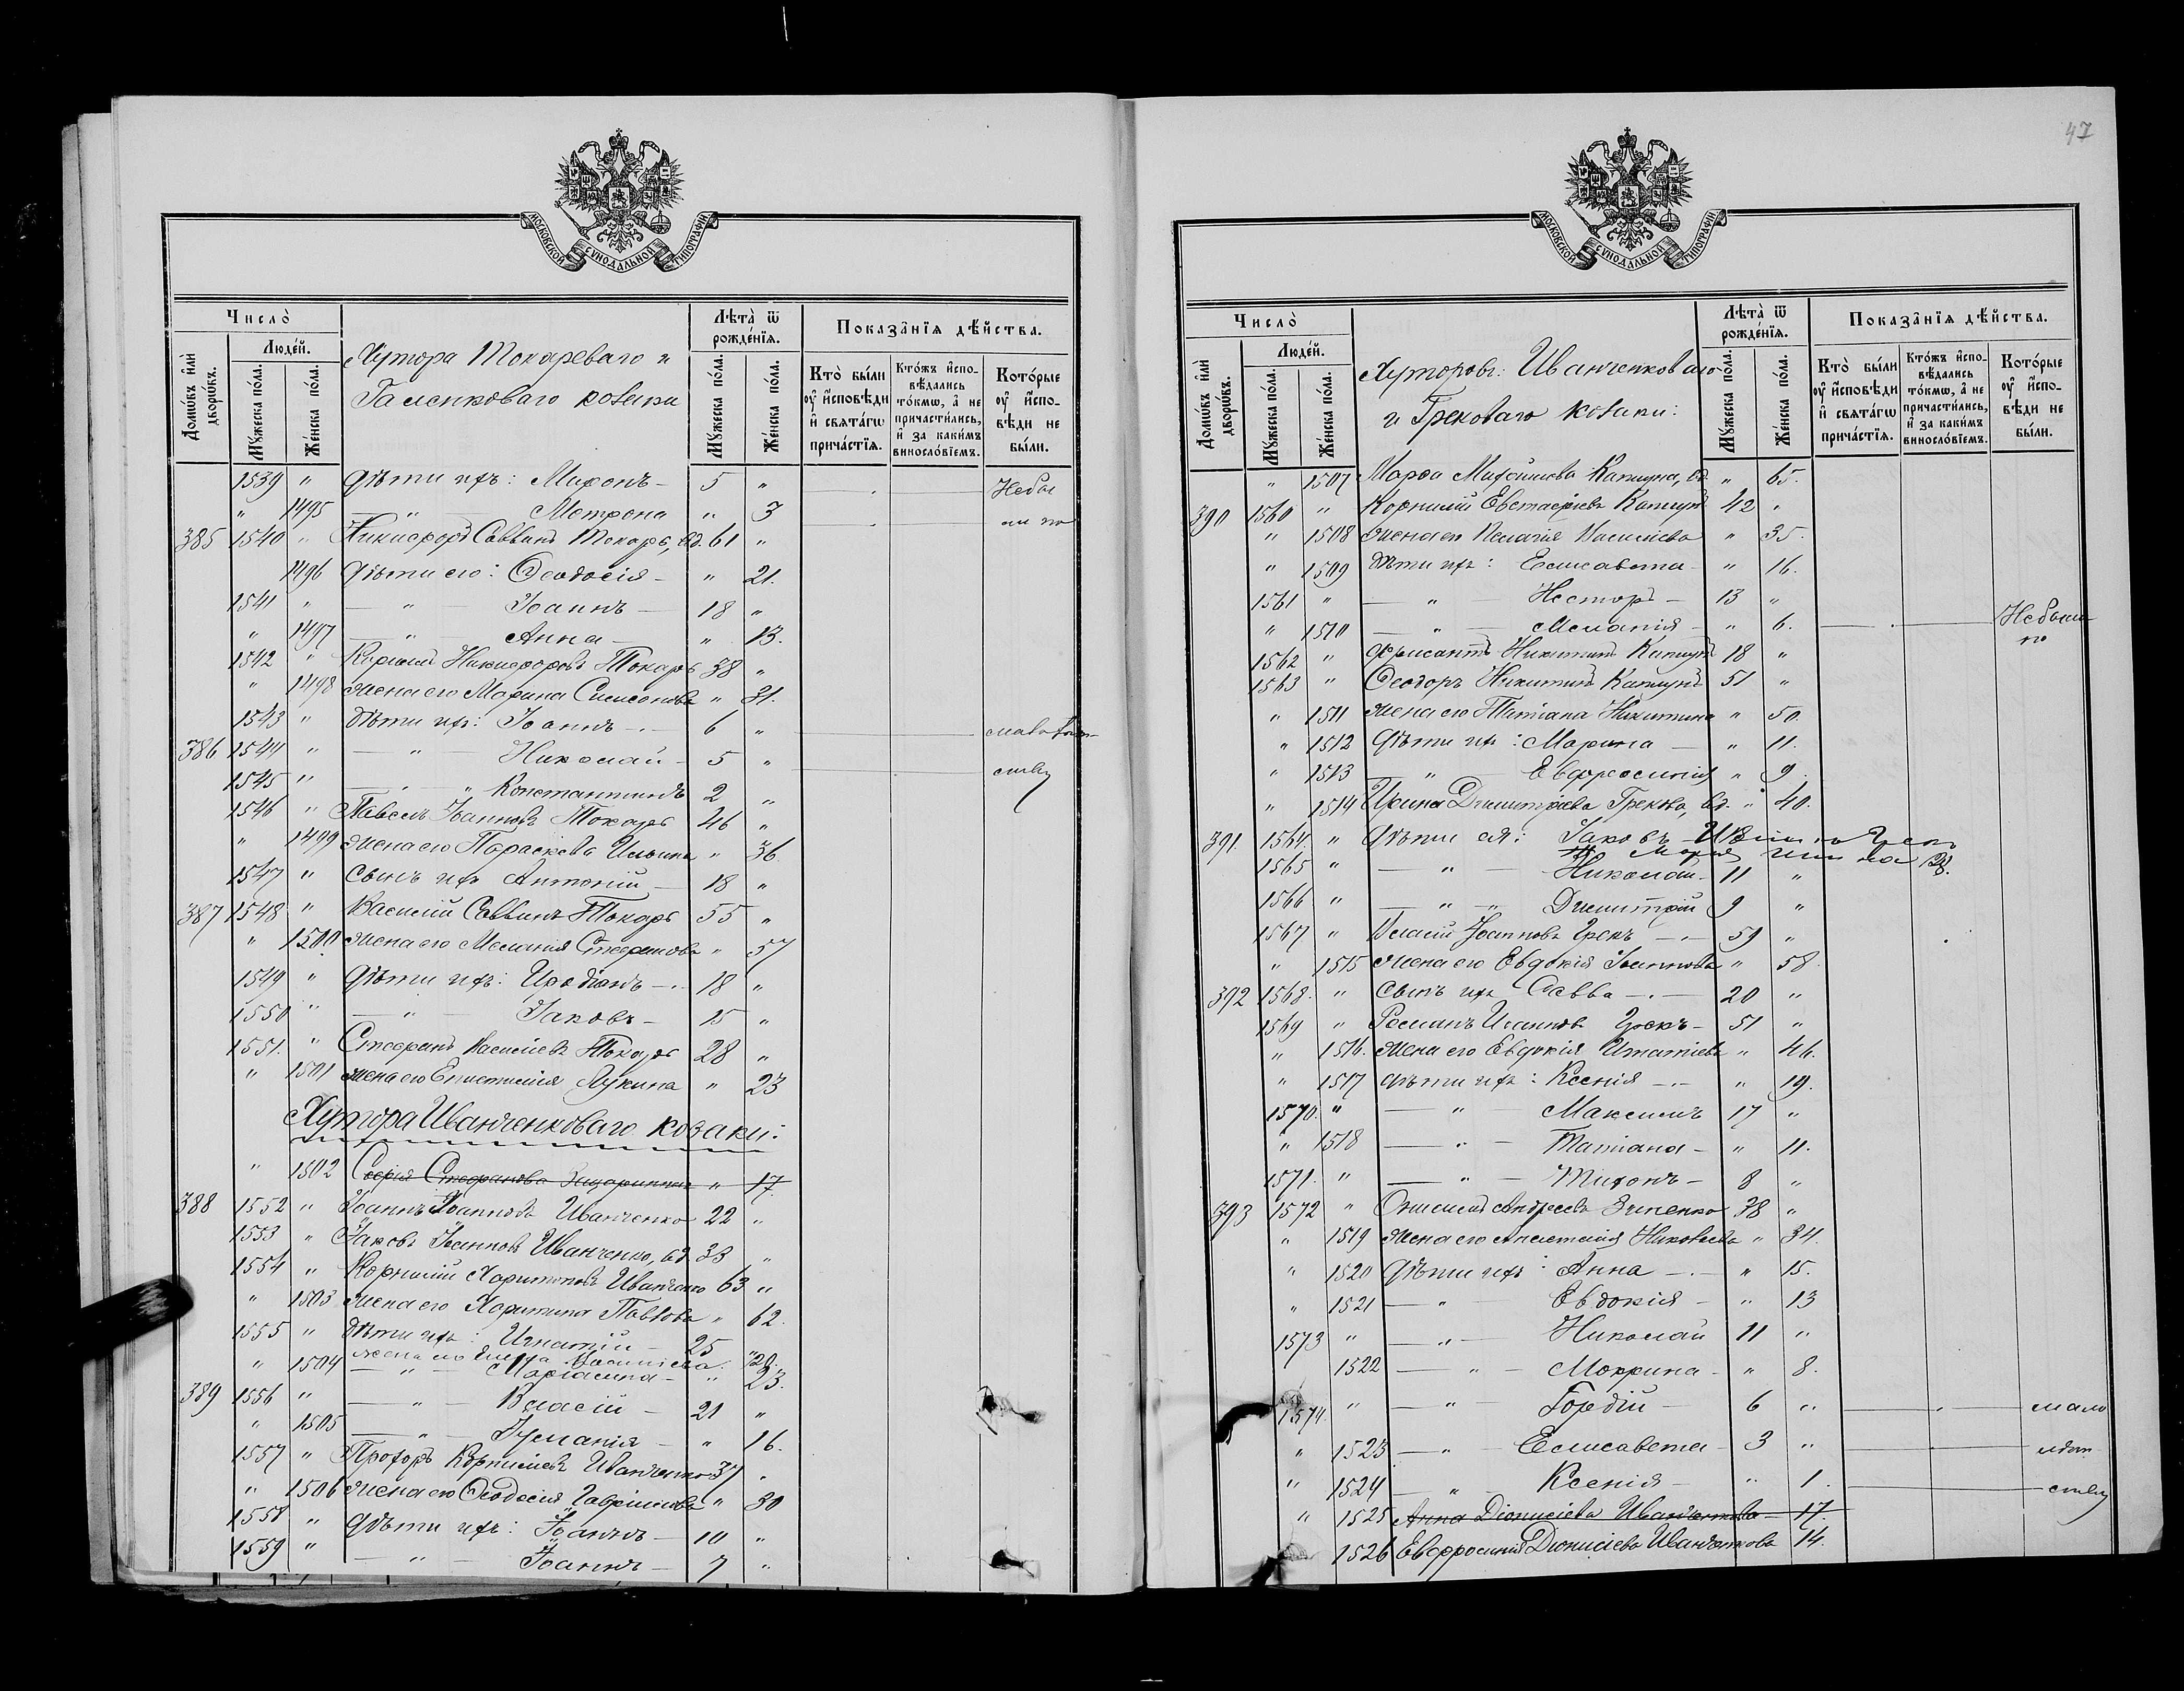 47
МОСКОВСКОЙ СѴНОДАЛЬНОЙ ТИПОГРАФІИ
Число̀
Домѡ́въ и҆лѝ дворѡ́въ.
Люде́й.
Мꙋ́жеска по́ла.
Же́нска по́ла.
Хутора Токареваго и
Галенковаго козаки
Лѣта̀ ѿ рожде́нїѧ.
Мꙋ́жеска по́ла.
Же́нска по́ла.
Показа̑нїѧ дѣ́йства.
Кто̀ бы́ли ѹ҆ и҆сповѣди и҆ свѧта́гѡ прича́стїѧ.
Кто́жъ и҆спо-вѣдались то́кмѡ, а҆ не причасти́лись, и҆ за каки́мъ винословїемъ.
Кото́рые ѹ҆ и҆спо-вѣди не бы́ли.
1539 " Дѣти ихъ: Тихонъ - 5 " Небы
" 1495 — " — Мотрона " 3 ли по
385 1540 " Никифоръ Саввинъ Токарь, вд. 61 "
1496 Дѣти его: Ѳеодосія - " 21.
1541 " — " — Іоаннъ — 18 "
" 1497 — " — Анна — " 13.
1542 " Корнилій Никифоровъ Токарь 38 "
" 1498 Жена его Марина Симеонова " 31.
1543 " Дѣти ихъ: Іоаннъ — 6 " малолѣт
386 1544 " — " — Николай - 5 " ству
1545 " — " — Константинъ 2 "
1546 " Павелъ Іоанновъ Токарь 46 "
" 1499 Жена его Параскева Ильина " 36
1547 " Сынъ ихъ Антоній — 18 "
387 1548 " Василій Саввинъ Токарь 55 "
" 1500 Жена его Меланія Стефанова " 57
1549 " Дѣти ихъ: Иродіонъ — 18 "
1550 " — " — Іаковъ — 15 "
1551. " Стефанъ Василіевъ Токарь 28 "
" 1501 Жена его Епистимія Лукина " 23
Хутора Иванченковаго козаки:
" 1502 Софія Стефанова " 17
388 1552 " Іоаннъ Іоанновъ Иванченко 22 "
1553 " Іаковъ Іоанновъ Иванченко, вд. 33 "
1554 " Корнилій Харитоновъ Иванченко 63 "
" 1503 Жена его Харитина Павлова " 62.
1555 " Дѣти ихъ: Игнатій — 25 "
жена его 20.
" 1504 — " — - " 23.
389 1556 " — " — Власій — 21 "
" 1505 — " — Іуліанія — " 16.
1557 " Прохоръ Корниліевъ Иванченко 37 "
" 1506 Жена его Ѳеодосія Гавріилова " 30
1558 " Дѣти ихъ: Іоаннъ — 10 "
1559 " — " — Іоаннъ — 7 "
МОСКОВСКОЙ СѴНОДАЛЬНОЙ ТИПОГРАФІИ
Число̀
Домѡ́въ и҆лѝ дворѡ́въ.
Люде́й.
Мꙋ́жеска по́ла.
Же́нска по́ла.
Хуторовъ: Иванченковаго
и Грековаго козаки:
Лѣта̀ ѿ рожде́нїѧ.
Мꙋ́жеска по́ла.
Же́нска по́ла.
Показа̑нїѧ дѣ́йства.
Кто̀ бы́ли ѹ҆ и҆сповѣди и҆ свѧта́гѡ прича́стїѧ.
Кто́жъ и҆спо-вѣдались то́кмѡ, а҆ не причасти́лись, и҆ за каки́мъ винословїемъ.
Кото́рые ѹ҆ и҆спо-вѣди не бы́ли.
" 1507 Марѳа вд. " 65.
390 1560 " Корнилій Евстафіевъ 42 "
" 1508 Жена его Пелагія Василіева " 35.
" 1509 Дѣти ихъ: Елисавета - " 16.
1561 " — " — Несторъ — 13 "
" 1510 — " — Меланія - " 6. Небыли по
1562 " Хрисантъ Никитинъ 18 "
1563 " Ѳеодоръ Никитинъ 51 "
" 1511 Жена его Татіана Никитина " 50.
" 1512 Дѣти ихъ: Марина — " 11.
" 1513 — " — Евфросинія " 9
" 1514 Ирина Димитріева Грекова, вд. " 40.
391. 1564. " Дѣти ея: Іаковъ
1565 " — " — Николай - 11 "
1566 " — " — Димитрій 9 "
1567 " Власій Іоанновъ Грекъ — 59 "
" 1515 Жена его Евдокія Іоаннова " 58
392 1568. " Сынъ ихъ Савва — 20 "
1569 " Романъ Іоанновъ Грекъ - 51 "
" 1516. Жена его Евдокія Игнатіева " 46.
" 1517 Дѣти ихъ: Ксенія — " 19.
1570. " — " — Максимъ 17 "
" 1518 — " — Татіана - " 11.
1571. " — " — Тихонъ - 8 "
393 1572 " Онисимъ Андреевъ Зиненко 38 "
" 1519 Жена его Анастасія " 34.
" 1520 Дѣти ихъ: Анна — " 15.
" 1521 — " — Евдокія - " 13
1573 " — " — Николай 11 "
1522 — " — Мокрина - " 8.
1574. " — " — Гордій — 6 " мало
" 1523 — " — Елисавета - 3 " лѣт
" 1524 — " — Ксенія — " 1. ству
" 1525 Анна Діонисіева Иванченкова 17.
1526 Евфросинія Діонисіева Иванченкова 14.